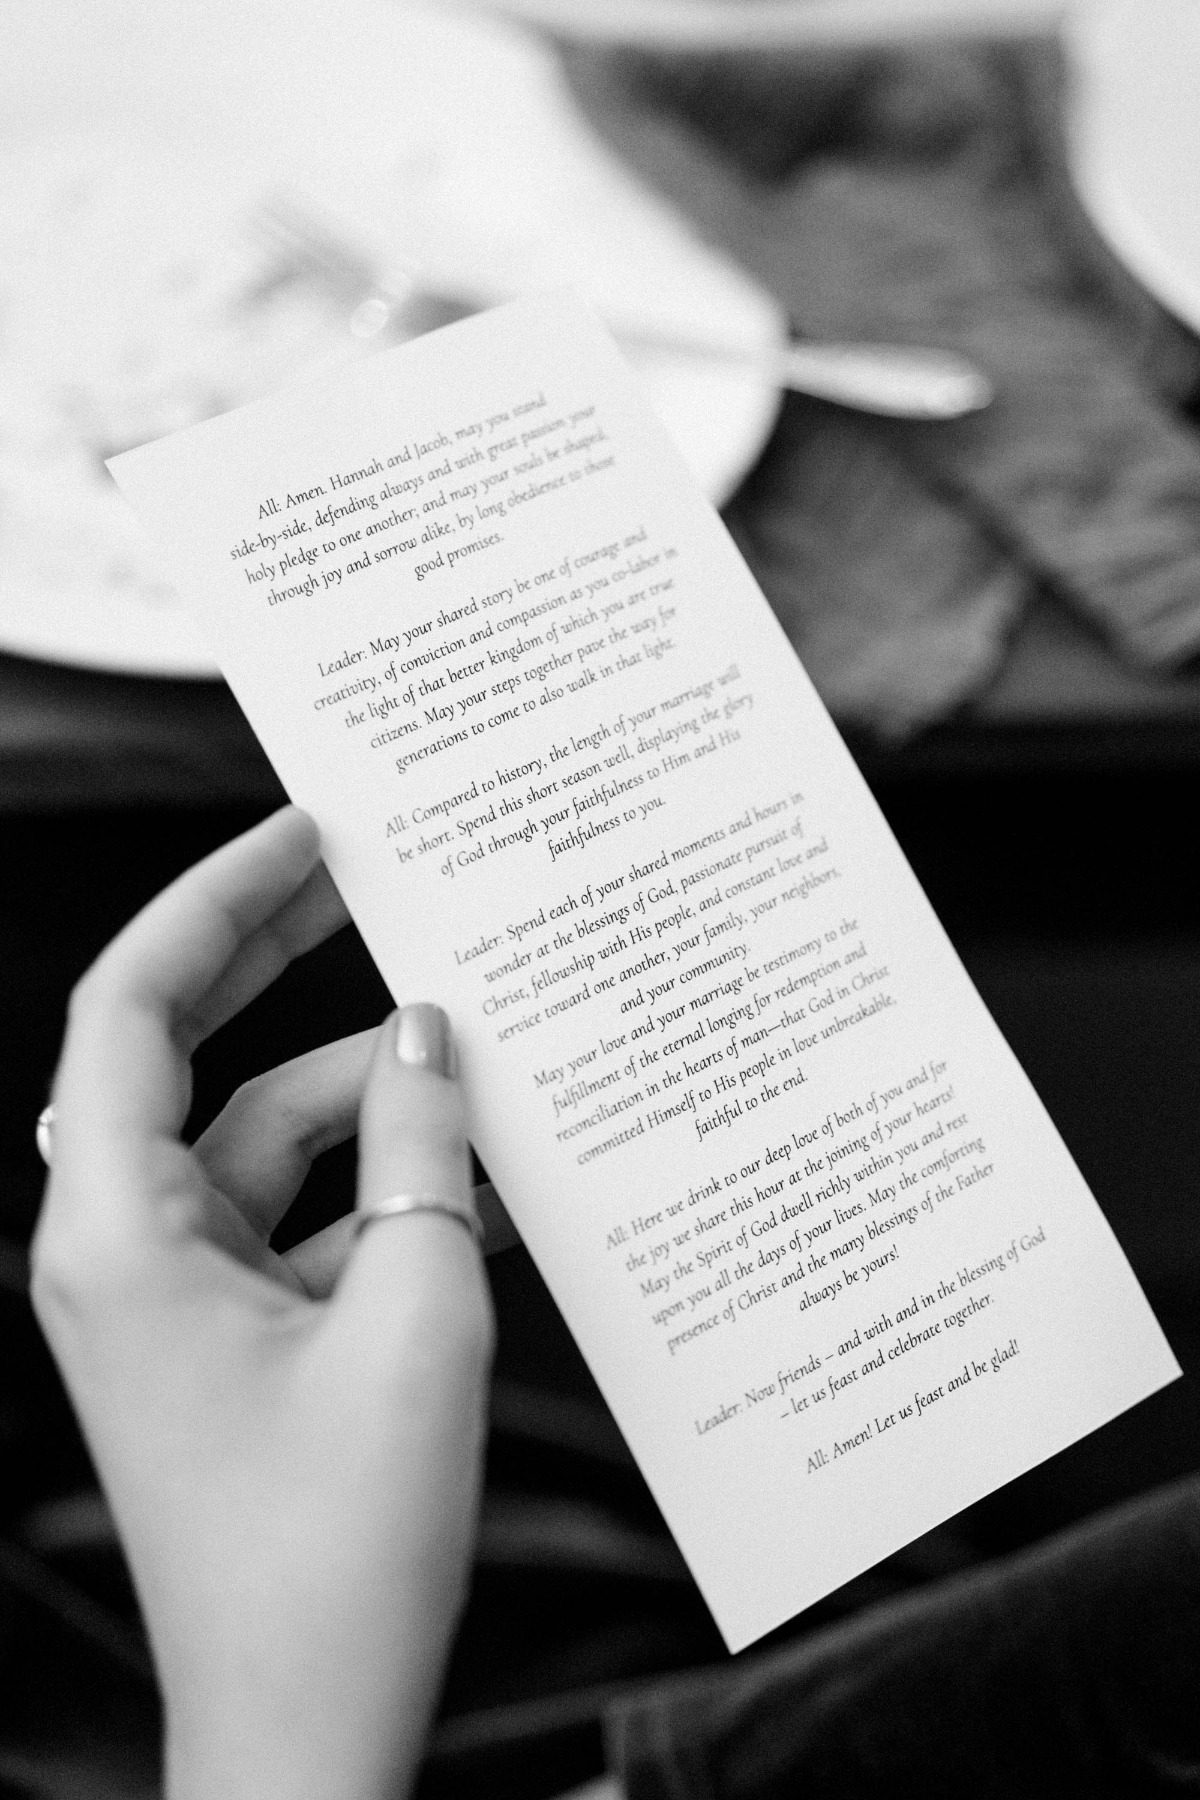 All: Amen. Hannah and Jacob, may you stand
side-by-side, defending always and with great passion your
holy pledge to one another; and may your souls be shaped,
through joy and sorrow alike, by long obedience to those
good promises.
Leader: May your shared story be one of courage and
creativity, of conviction and compassion as you co-labor in
the light of that better kingdom of which you are true
citizens. May your steps together pave the way for
generations to come to also walk in that light.
All: Compared to history, the length of your marriage will
be short. Spend this short season well, displaying the glory
of God through your faithfulness to Him and His
faithfulness to you.
Leader: Spend each of your shared moments and hours in
wonder at the blessings of God, passionate pursuit of
Christ, fellowship with His people, and constant love and
service toward one another, your family, your neighbors,
and your community.
May your love and your marriage be testimony to the
fulfillment of the eternal longing for redemption and
reconciliation in the hearts of man—that God in Christ
committed Himself to His people in love unbreakable,
faithful to the end.
All: Here we drink to our deep love of both of you and for
the joy we share this hour at the joining of your hearts!
May the Spirit of God dwell richly within you and rest
upon you all the days of your lives. May the comforting
presence of Christ and the many blessings of the Father
always be yours!
Leader: Now friends – and with and in the blessing of God
– let us feast and celebrate together.
All: Amen! Let us feast and be glad!